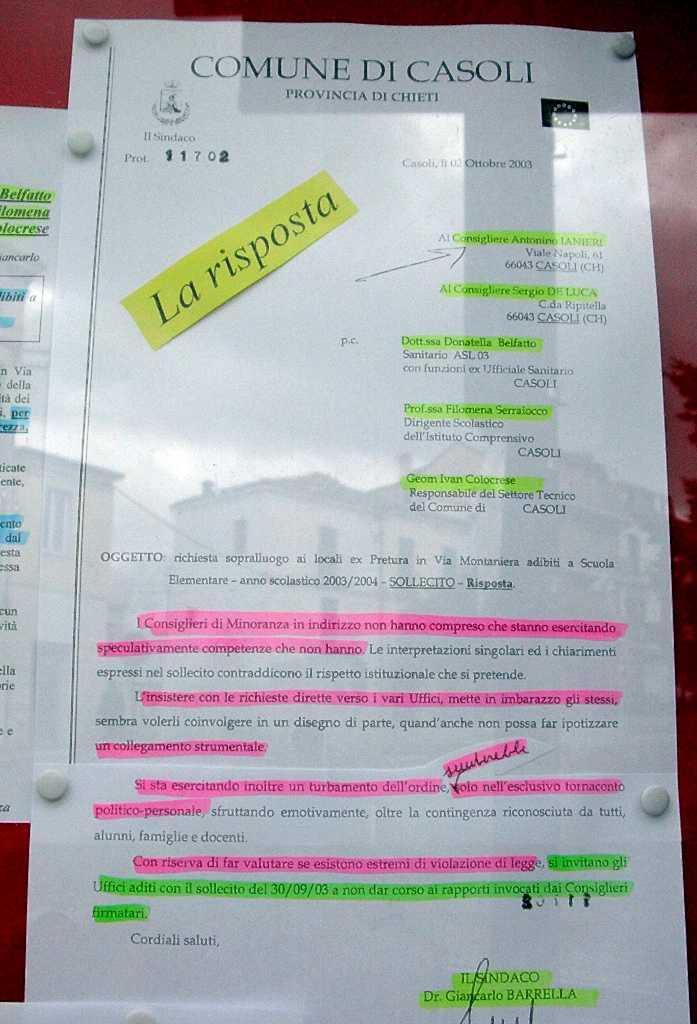 COMUNE DI CASOLI
PROVINCIA DI CHIETI
Il Sindaco
Prot. 11702
Casoli, lì 02 Ottobre 2003
La risposta
Al Consigliere Antonino IANIERI
Viale Napoli, 61
66043 CASOLI (CH)
Al Consigliere Sergio DE LUCA
C.da Ripitella
66043 CASOLI (CH)
p.c.
Dott.ssa Donatella Belfatto
Sanitario ASL 03
con funzioni ex Ufficiale Sanitario
CASOLI
Prof.ssa Filomena Serraiocco
Dirigente Scolastico
dell'Istituto Comprensivo
CASOLI
Geom Ivan Colocrese
Responsabile del Settore Tecnico
del Comune di CASOLI
OGGETTO: richiesta sopralluogo ai locali ex Pretura in Via Montaniera adibiti a Scuola
Elementare – anno scolastico 2003/2004 - SOLLECITO – Risposta.
I Consiglieri di Minoranza in indirizzo non hanno compreso che stanno esercitando
speculativamente competenze che non hanno. Le interpretazioni singolari ed i chiarimenti
espressi nel sollecito contraddicono il rispetto istituzionale che si pretende.
L'insistere con le richieste dirette verso i vari Uffici, mette in imbarazzo gli stessi,
sembra volerli coinvolgere in un disegno di parte, quand'anche non possa far ipotizzare
un collegamento strumentale.
Si sta esercitando inoltre un turbamento dell'ordine, volo nell'esclusivo tornaconto
politico-personale, sfruttando emotivamente, oltre la contingenza riconosciuta da tutti,
alunni, famiglie e docenti.
Con riserva di far valutare se esistono estremi di violazione di legge, si invitano gli
Uffici aditi con il sollecito del 30/09/03 a non dar corso ai rapporti invocati dai Consiglieri
firmatari.
Cordiali saluti,
IL SINDACO
Dr. Giancarlo BARRELLA
Belfatto
ilomena
olocrese
iancarlo
libiti a
n Via
della
tà dei
i, per
rezza,
ticate
ente,
ento
dal
esta
essa
cun
vità
ella
rie
e e
za